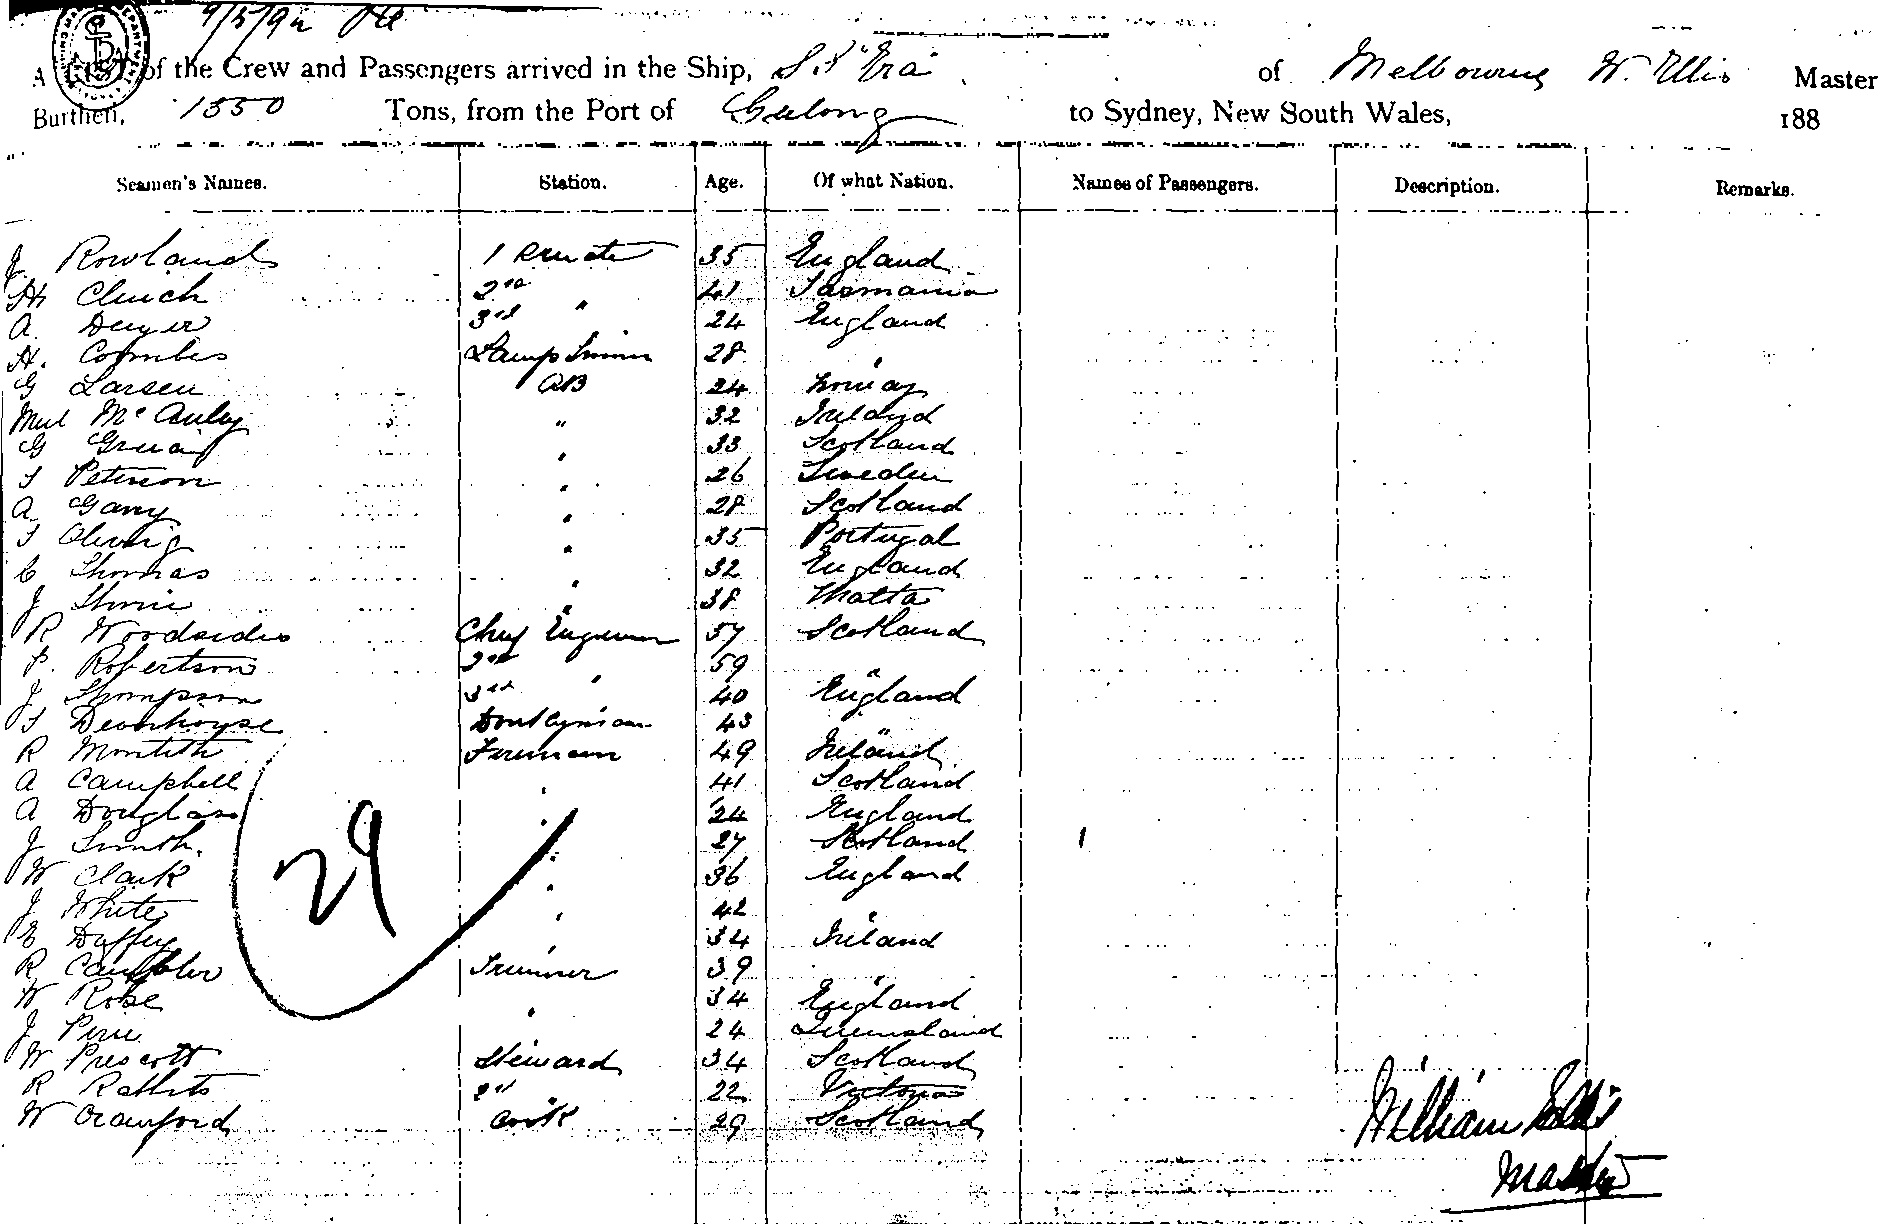 9/5/92
A LIST of the Crew and Passengers arrived in the Ship, S.S "Era of Melbourne W. Ellis Master
Burthen, 1550 Tons, from the Port of Geelong to Sydney, New South Wales, 188
Seamen's Names. Station. Age. Of what Nation. Names of Passengers. Description. Remarks.
J Rowland 1 35 England
H Clinch 2nd 41 Tasmania
A. Dwyer 3rd " 24 England
H. Combes Lamp Trimmer 28 "
G Larsen AB 24 Norway
McAuley " 32 Ireland
G " 33 Scotland
T Peterson " 26 Sweden
A Garry " 28 Scotland
T " 35 Portugal
C Thomas " 32 England
J " 38 Malta
R Woodsides Chief Engineer 57 Scotland
P. Robertson 2nd " 59 "
J Thompson 3rd " 40 England
T Devonhouse Donkeyman 43 "
R Montith Fireman 49 Ireland
A Campbell " 41 Scotland
A Douglass " 24 England
J Smith. " 27 Scotland
W Clark " 36 England
J White " 42 "
E Duffey " 34 Ireland
R Trimmer 39 "
W Rose " 34 England
J " 24 Queensland
W Prescott Steward 34 Scotland
R Rabbits 2nd 22 Victoria
W Crawford Cook 29 Scotland
29
William Ellis
Master